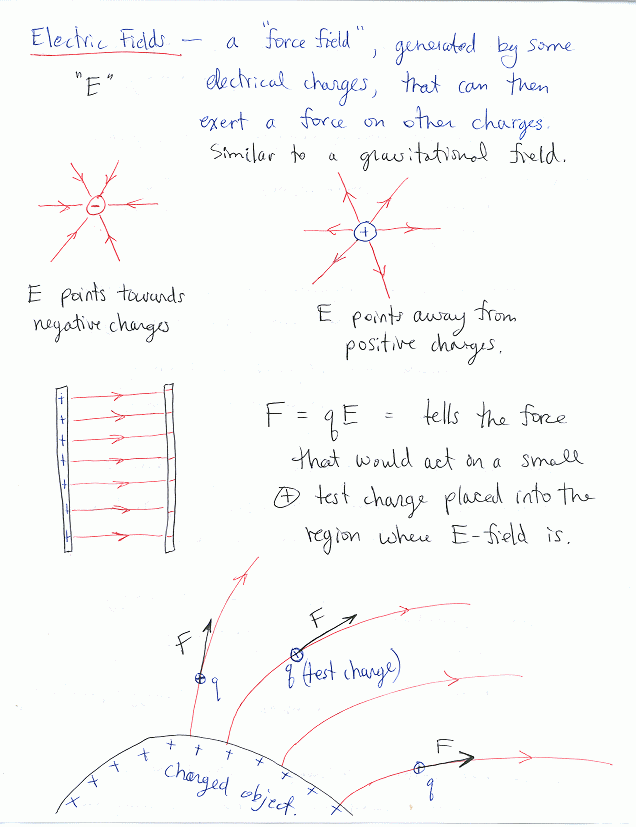 Electric Fields — a "force field", generated by some
"E" electrical charges, that can then
exert a force on other charges.
Similar to a gravitational field.
-
+
E points towards
negative charges
E points away from
positive charges.
F = qE = tells the force
that would act on a small
⊕ test charge placed into the
region where E-field is.
+ -
+ -
+ -
+ -
+ -
+ -
+ -
F
F
+ q
+ q (test charge)
F
+ q
+ + + + + + + + + + +
charged object.